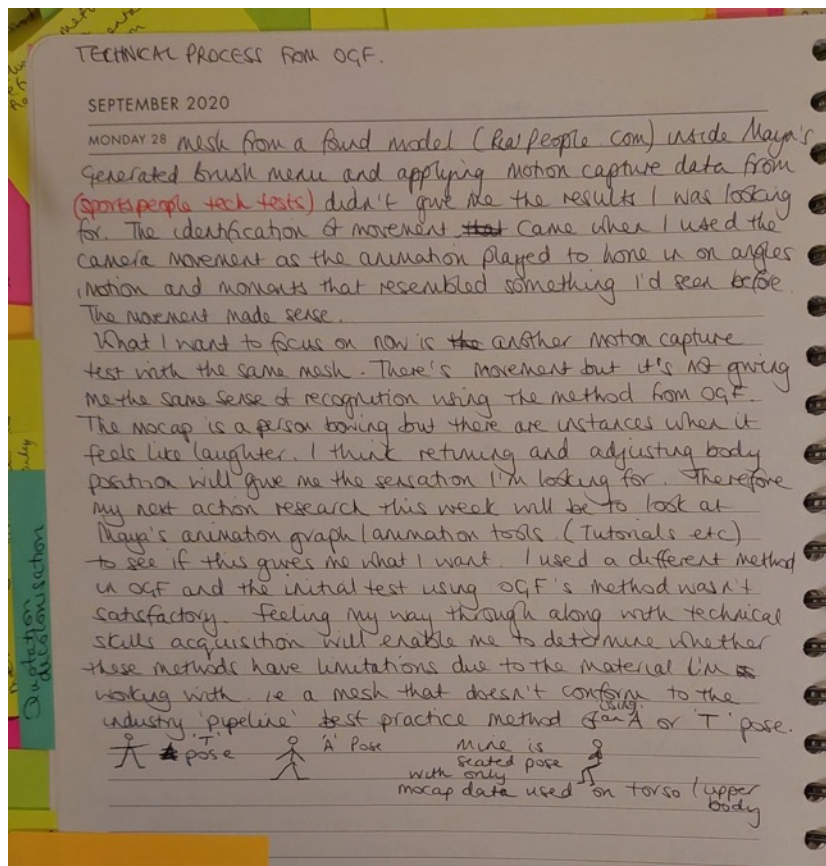 TECHNICAL PROCESS FROM OGF.
SEPTEMBER 2020
MONDAY 28 mesh from a found model (RealPeople.com) inside Maya's
generated brush menu and applying motion capture data from
(sportspeople tech tests) didn't give me the results I was looking
for. The identification of movement that came when I used the
camera movement as the animation played to hone in on angles
motion and moments that resembled something I'd seen before.
The movement made sense.
What I want to focus on now is the another motion capture
test with the same mesh. There's movement but it's not giving
me the same sense of recognition using the method from OGF.
The mocap is a person bowing but there are instances when it
feels like laughter. I think retiming and adjusting body
position will give me the sensation I'm looking for. Therefore
my next action research this week will be to look at
Maya's animation graph/animation tools. (Tutorials etc)
to see if this gives me what I want. I used a different method
in OGF and the initial test using OGF's method wasn't
satisfactory. Feeling my way through along with technical
skills acquisition will enable me to determine whether
these methods have limitations due to the material I'm
working with. ie a mesh that doesn't conform to the
industry 'pipeline' best practice method of using an 'A' or 'T' pose.
'T' pose
'A' Pose
Mine is
seated pose
with only
mocap data used on torso/upper
body
Quotation
decolonisation